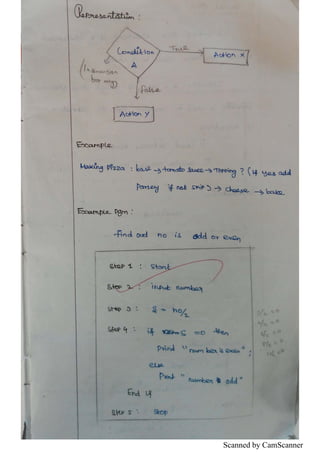 Representation :
Condition
A
True
Action X
false
Action Y
Example
Making Pizza : base → tomato sauce → Topping ? (if yes add
if not skip) → cheese → bake
Example Pgm :
- find out no is odd or even
Step 1 : Start
Step 2 : input number
Step 3 : S = no/2
Step 4 : if S == 0 then
Print "number is even" ;
else
Print "number odd"
End if
Step 5 : Stop
Scanned by CamScanner